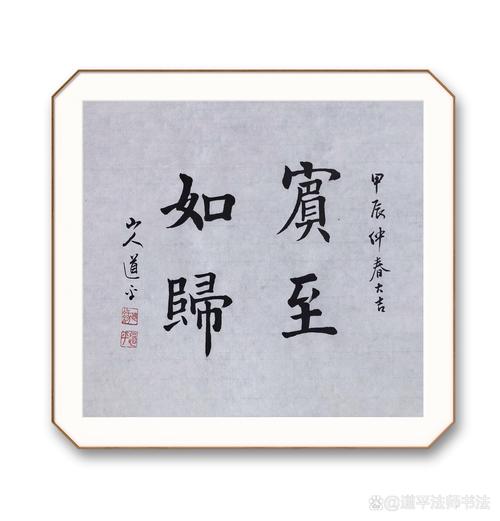 甲辰仲春大吉
賓至
如歸
山人道平
@道平法师书法